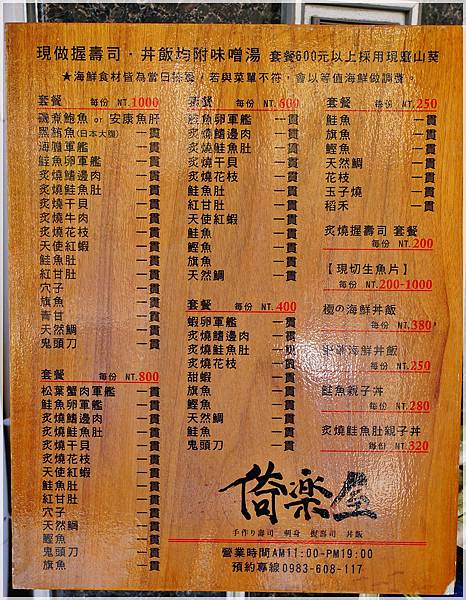 現做握壽司・丼飯均附味噌湯 套餐600元以上採用現磨山葵
★海鮮食材皆為當日採買，若與菜單不符，會以等值海鮮做調整。
套餐 每份 NT.1000
鮑魚 or 安康魚肝 一貫
黑鮪魚(日本大腹) 一貫
海膽軍艦 一貫
鮭魚卵軍艦 一貫
炙燒鰭邊肉 一貫
炙燒鮭魚肚 一貫
炙燒干貝 一貫
炙燒牛肉 一貫
炙燒花枝 一貫
天使紅蝦 一貫
鮭魚肚 一貫
紅甘肚 一貫
穴子 一貫
旗魚 一貫
青甘 一貫
天然鯛 一貫
鬼頭刀 一貫
套餐 每份 NT.800
松葉蟹肉軍艦 一貫
鮭魚卵軍艦 一貫
炙燒鰭邊肉 一貫
炙燒鮭魚肚 一貫
炙燒干貝 一貫
炙燒花枝 一貫
天使紅蝦 一貫
鮭魚肚 一貫
紅甘肚 一貫
穴子 一貫
天然鯛 一貫
鰹魚 一貫
鬼頭刀 一貫
旗魚 一貫
套餐 每份 NT.600
鮭魚卵軍艦 一貫
炙燒鰭邊肉 一貫
炙燒鮭魚肚 一貫
炙燒干貝 一貫
炙燒花枝 一貫
鮭魚肚 一貫
紅甘肚 一貫
天使紅蝦 一貫
鮭魚 一貫
鰹魚 一貫
旗魚 一貫
天然鯛 一貫
套餐 每份 NT.400
蝦卵軍艦 一貫
炙燒鰭邊肉 一貫
炙燒鮭魚肚 一貫
炙燒花枝 一貫
甜蝦 一貫
旗魚 一貫
鰹魚 一貫
天然鯛 一貫
鮭魚 一貫
鬼頭刀 一貫
套餐 每份 NT.250
鮭魚 一貫
旗魚 一貫
鰹魚 一貫
天然鯛 一貫
花枝 一貫
玉子燒 一貫
稻禾 一貫
炙燒握壽司 套餐
每份 NT.200
【現切生魚片】
每份 NT.200-1000
極の海鮮丼飯
每份 NT.380
海鮮丼飯
每份 NT.250
鮭魚親子丼
每份 NT.280
炙燒鮭魚肚親子丼
每份 NT.320
倚楽屋
手作り壽司 刺身 握壽司 丼飯
營業時間AM11:00-PM19:00
預約專線0983-608-117